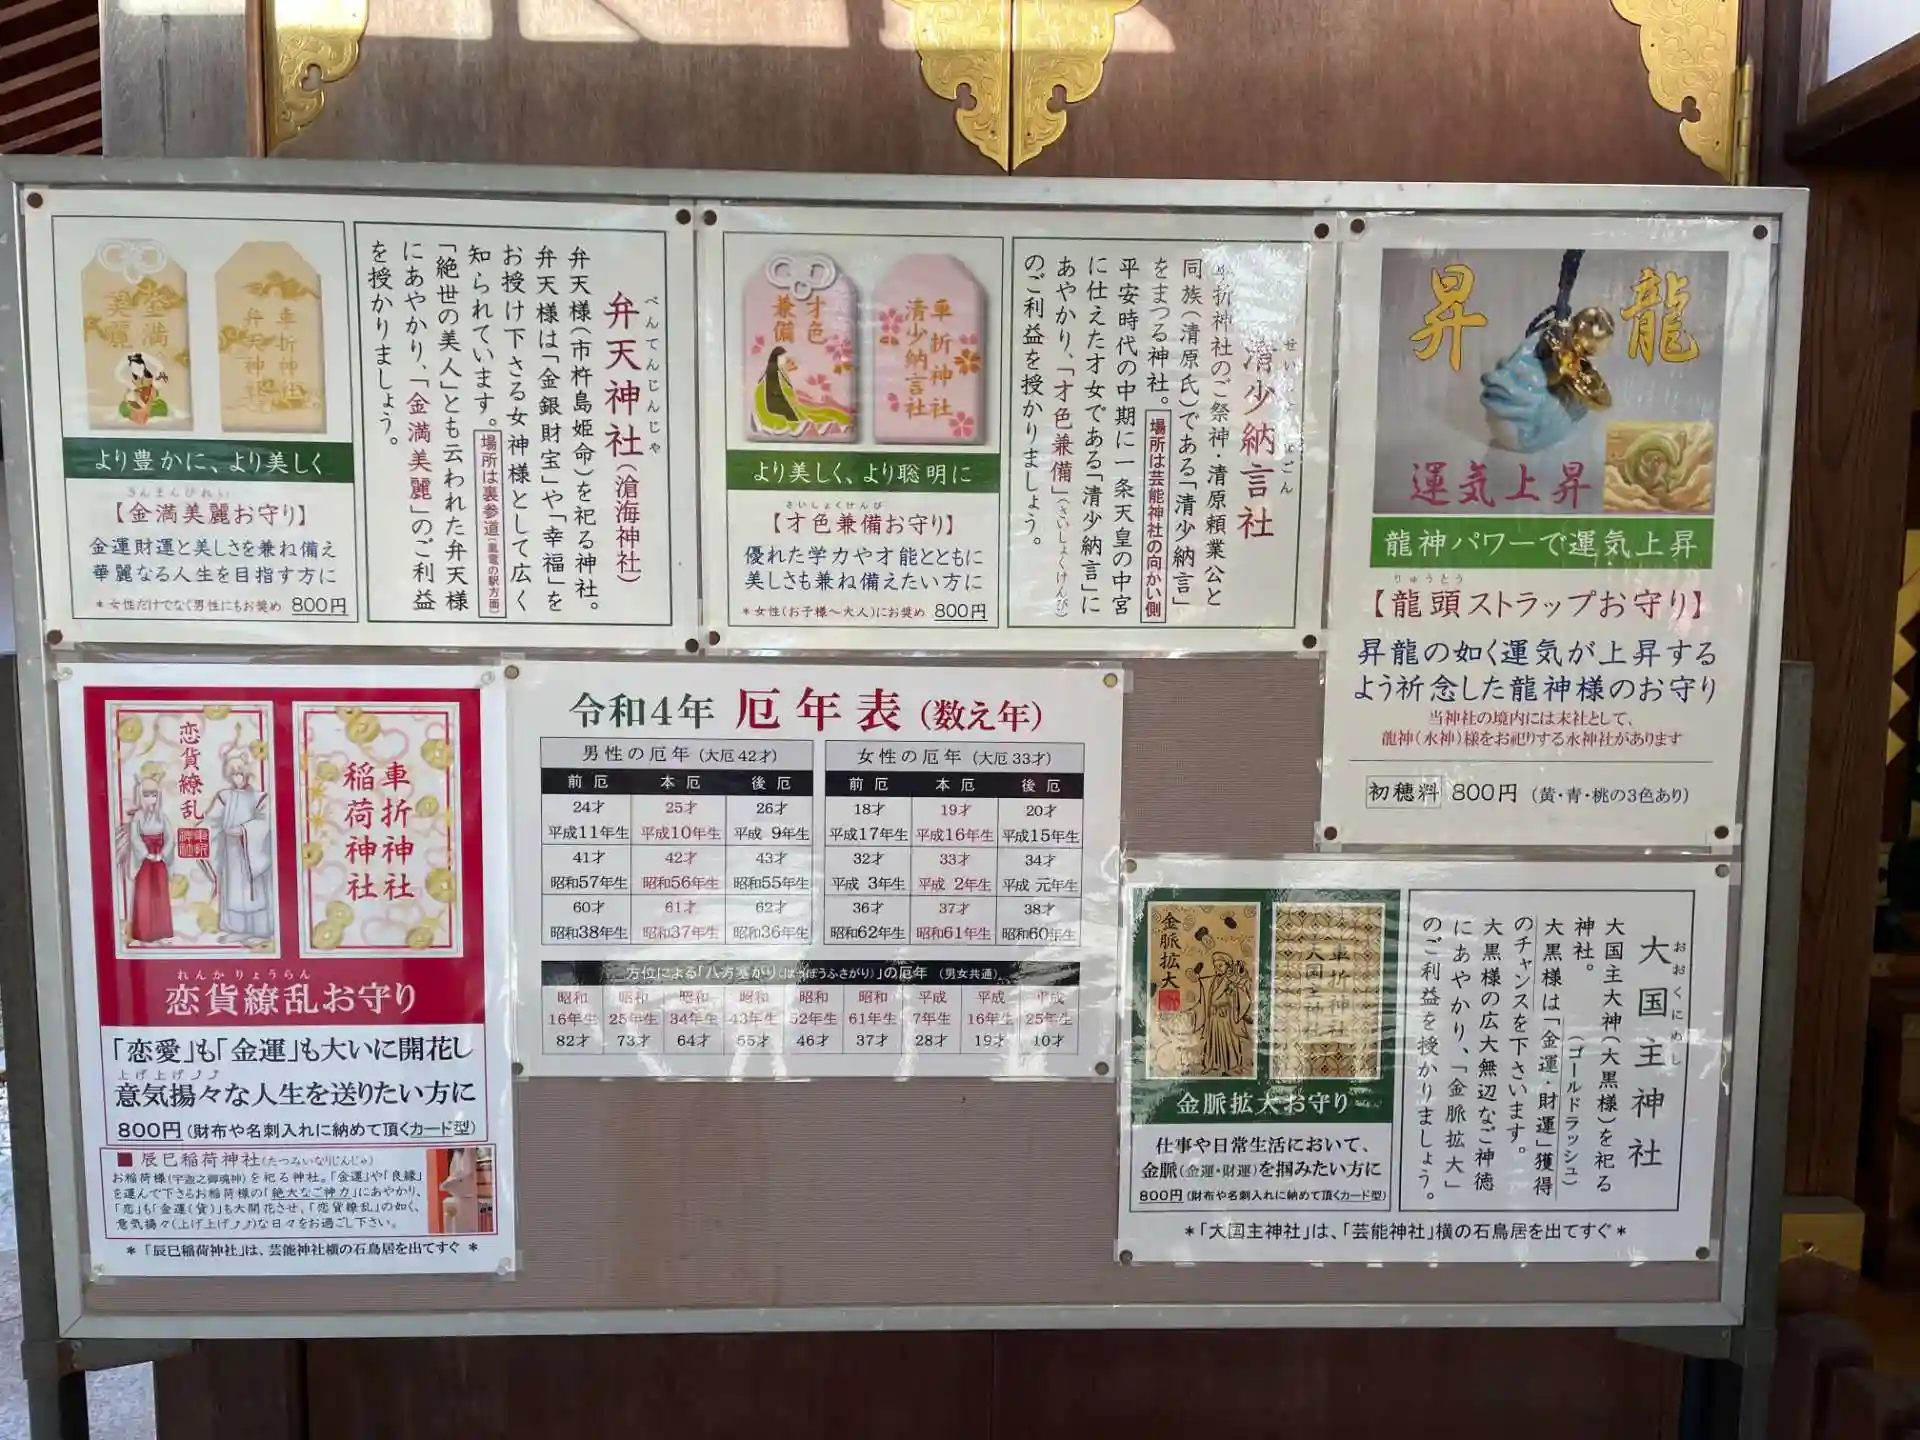 金満
美麗
車折神社
弁天神社
より豊かに、より美しく
きんまんびれい
【金満美麗お守り】
金運財運と美しさを兼ね備え
華麗なる人生を目指す方に
*女性だけでなく男性にもお奨め 800円
べんてんじんじゃ
弁天神社(滄海神社)
弁天様(市杵島姫命)を祀る神社。
弁天様は「金銀財宝」や「幸福」を
お授け下さる女神様として広く
知られています。場所は裏参道(嵐電の駅方面)
「絶世の美人」とも云われた弁天様
にあやかり、「金満美麗」のご利益
を授かりましょう。
才色
兼備
車折神社
清少納言社
より美しく、より聡明に
さいしょくけんび
【才色兼備お守り】
優れた学力や才能とともに
美しさも兼ね備えたい方に
*女性(お子様〜大人)にお奨め 800円
清少納言社
折神社のご祭神・清原頼業公と
同族(清原氏)である「清少納言」
をまつる神社。場所は芸能神社の向かい側
平安時代の中期に一条天皇の中宮
に仕えた才女である「清少納言」に
あやかり、「才色兼備」(さいしょくけんび)
のご利益を授かりましょう。
昇龍
運気上昇
龍神パワーで運気上昇
りゅうとう
【龍頭ストラップお守り】
昇龍の如く運気が上昇する
よう祈念した龍神様のお守り
当神社の境内には末社として、
龍神(水神)様をお祀りする水神社があります
初穂料 800円 (黄・青・桃の3色あり)
恋貨繚乱
車折神社
稲荷神社
れんかりょうらん
恋貨繚乱お守り
「恋愛」も「金運」も大いに開花し
上げ上げ⤴⤴
意気揚々な人生を送りたい方に
800円(財布や名刺入れに納めて頂くカード型)
■ 辰巳稲荷神社(たつみいなりじんじゃ)
お稲荷様(宇迦之御魂神)を祀る神社。「金運」や「良縁」
を運んで下さるお稲荷様の「絶大なご神力」にあやかり、
「恋」も「金運(貨)」も大開花させ、「恋貨繚乱」の如く、
意気揚々(上げ上げ⤴⤴)な日々をお過ごし下さい。
*「辰巳稲荷神社」は、芸能神社横の石鳥居を出てすぐ *
令和4年 厄年表 (数え年)
男性の厄年 (大厄42才)
前厄 本厄 後厄
24才 25才 26才
平成11年生 平成10年生 平成 9年生
41才 42才 43才
昭和57年生 昭和56年生 昭和55年生
60才 61才 62才
昭和38年生 昭和37年生 昭和36年生
女性の厄年 (大厄33才)
前厄 本厄 後厄
18才 19才 20才
平成17年生 平成16年生 平成15年生
32才 33才 34才
平成 3年生 平成 2年生 平成 元年生
36才 37才 38才
昭和62年生 昭和61年生 昭和60年生
方位による「八方塞がり(はっぽうふさがり)」の厄年 (男女共通)
昭和 昭和 昭和 昭和 昭和 昭和 平成 平成 平成
16年生 25年生 34年生 43年生 52年生 61年生 7年生 16年生 25年生
82才 73才 64才 55才 46才 37才 28才 19才 10才
金脈拡大
車折神社
大国主神社
金脈拡大お守り
仕事や日常生活において、
金脈(金運・財運)を掴みたい方に
800円(財布や名刺入れに納めて頂くカード型)
おおくにぬし
大国主神社
大国主大神(大黒様)を祀る
神社。
(ゴールドラッシュ)
大黒様は「金運・財運」獲得
のチャンスを下さいます。
大黒様の広大無辺なご神徳
にあやかり、「金脈拡大」
のご利益を授かりましょう。
*「大国主神社」は、「芸能神社」横の石鳥居を出てすぐ *